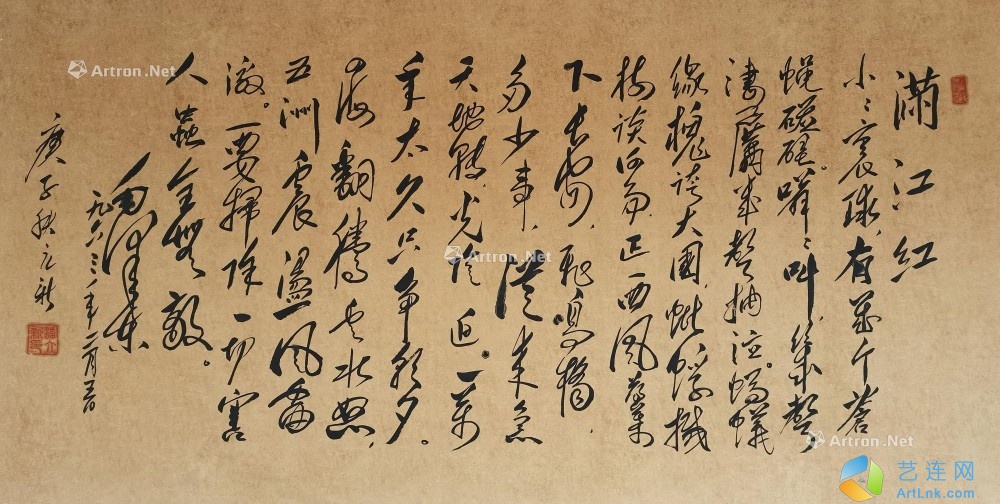 满江红
小小寰球，有几个苍
蝇碰壁。嗡嗡叫，几声
凄厉几声抽泣。蚂蚁
缘槐夸大国，蚍蜉撼
树谈何易。正西风落叶
下长安，飞鸣镝
多少事，从来急
天地转，光阴迫。一万
年太久只争朝夕。
四海翻腾云水怒，
五洲震盪风雷
激。要掃除一切害
人蟲全无敌。
毛泽东
一九六三年二月
庚子秋
Artron.Net
Artron.Net
Artron.Net
Artron.Net
艺连网
ArtLnk.com